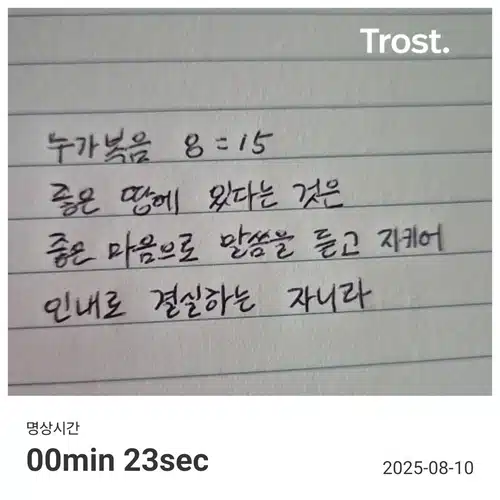 Trost.
누가복음 8:15
좋은 땅에 있다는 것은
좋은 마음으로 말씀을 듣고 지키어
인내로 결실하는 자니라
명상시간
00min 23sec
2025-08-10